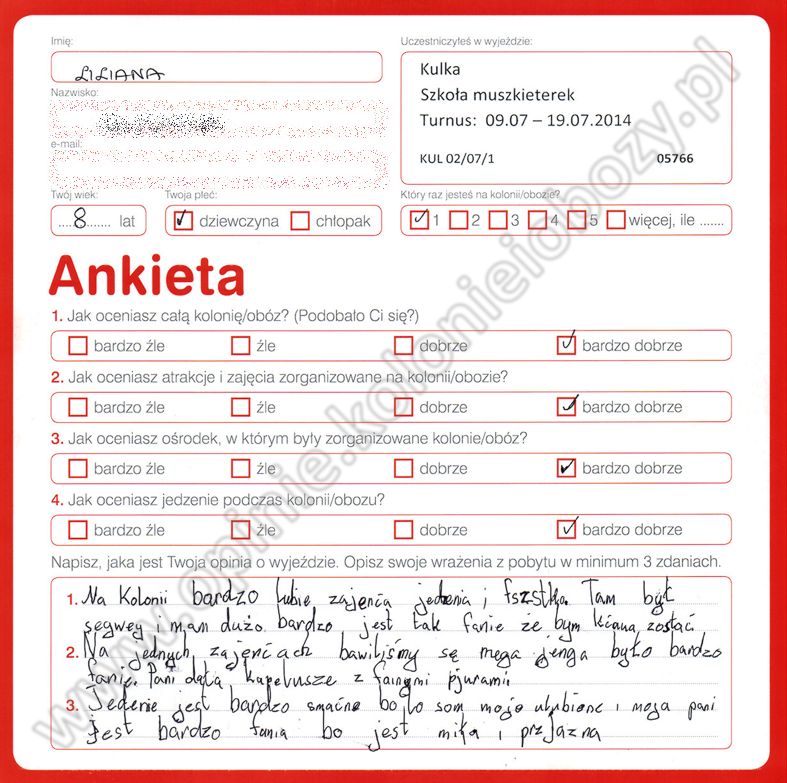 Imię:
LILIANA
Uczestniczyłeś w wyjeździe:
Kulka
Szkoła muszkieterek
Turnus: 09.07 – 19.07.2014
KUL 02/07/1 05766
Nazwisko:
e-mail:
Twój wiek:
....8....... lat
Twoja płeć:
dziewczyna chłopak
Który raz jesteś na kolonii/obozie?
1 2 3 4 5 więcej, ile .......
Ankieta
1. Jak oceniasz całą kolonię/obóz? (Podobało Ci się?)
bardzo źle źle dobrze bardzo dobrze
2. Jak oceniasz atrakcje i zajęcia zorganizowane na kolonii/obozie?
bardzo źle źle dobrze bardzo dobrze
3. Jak oceniasz ośrodek, w którym były zorganizowane kolonie/obóz?
bardzo źle źle dobrze bardzo dobrze
4. Jak oceniasz jedzenie podczas kolonii/obozu?
bardzo źle źle dobrze bardzo dobrze
Napisz, jaka jest Twoja opinia o wyjeździe. Opisz swoje wrażenia z pobytu w minimum 3 zdaniach.
1. Na Kolonii bardzo lubie zajencia jedzenia i Tam był
segwey i mam dużo bardzo jest tak fanie ze bym kciała zostać
2. Na jednych zajenciach bawiliśmy sę mega jenga było bardzo
fanie. Pani dała kapelusze z fainymi pjurami
3. Jedenie jest bardzo smaczne bo to som moje ulubione i moja pani
jest bardzo fania bo jest miła i przJazna
www.opinie.kolonieiobozy.pl